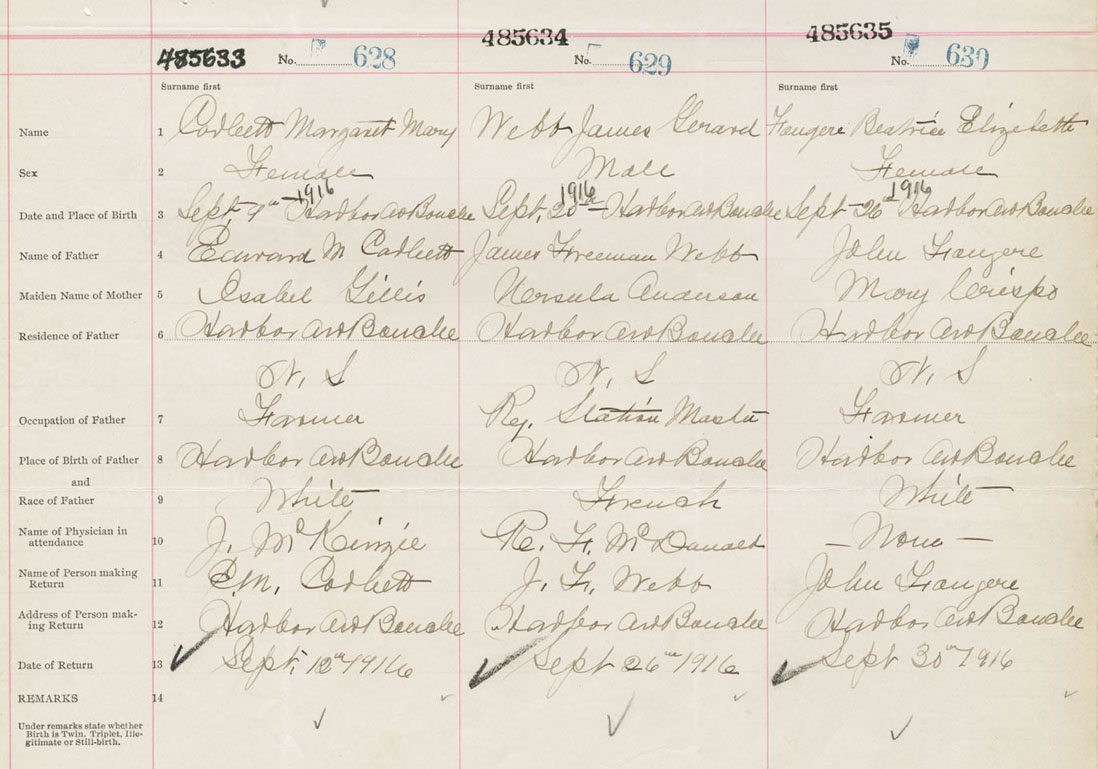 485633 485634 485635
No. 628 No. 629 No. 630
Surname first Surname first Surname first
Name 1 Corbett Margaret Mary Webb James Gerard Fougere Beatrice Elizebeth
Sex 2 Female Male Female
1916 1916 1916
Date and Place of Birth 3 Sept, 9th Harbor Au Bouche Sept, 20th Harbor Au Bouche Sept 26th Harbor Au Bouche
Name of Father 4 Edward M Corbett James Freeman Webb John Fougere
Maiden Name of Mother 5 Isabel Gillis Ursula Anderson Mary Crispo
Residence of Father 6 Harbor Au Bouche Harbor Au Bouche Harbor Au Bouche
N, S N, S N, S
Occupation of Father 7 Farmer Ry. Station Master Farmer
Place of Birth of Father 8 Harbor Au Bouche Harbor Au Bouche Harbor Au Bouche
and
Race of Father 9 White French White
Name of Physician in
attendance 10 J. McKinzie F. McDonald – None –
Name of Person making
Return 11 E.M. Corbett J. F. Webb John Fougere
Address of Person mak-
ing Return 12 Harbor Au Bouche Harbor Au Bouche Harbor Au Bouche
Date of Return 13 Sept, 12th 1916 Sept 26th 1916 Sept 30th 1916
REMARKS 14
Under remarks state whether
Birth is Twin, Triplet, Ille-
gitimate or Still-birth.